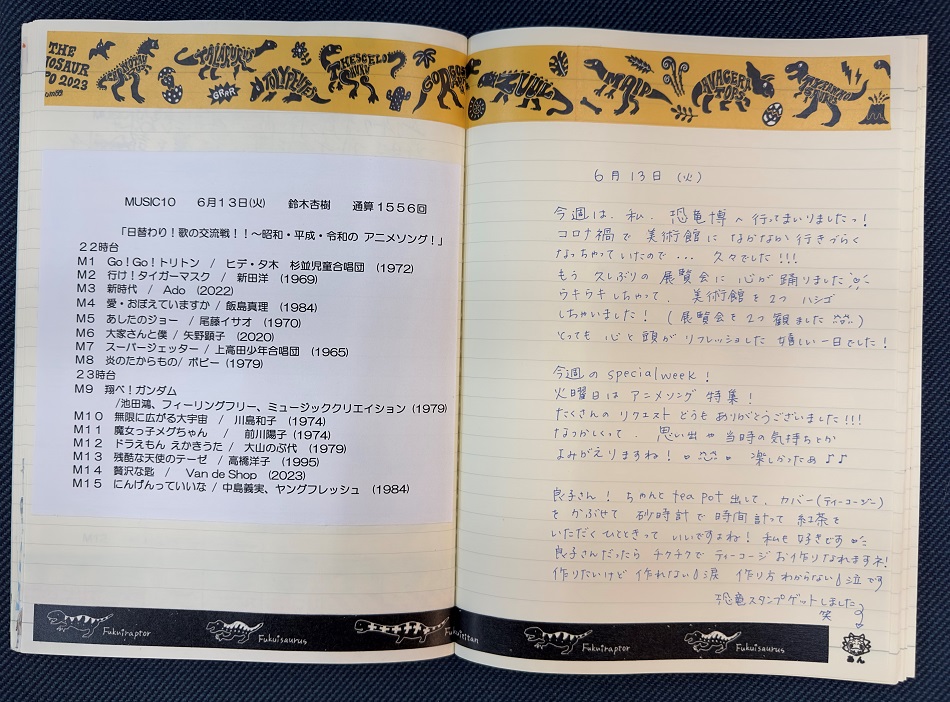 THE
OSAUR
PO 2023
GRAR
ZUUL
MAIP
MUSIC10　６月１３日(火)　鈴木杏樹　通算１５５６回
「日替わり！歌の交流戦！！～昭和・平成・令和の アニメソング！」
２２時台
M１　Go！Go！トリトン　/　ヒデ・夕木　杉並児童合唱団　(1972)
M２　行け！タイガーマスク　/　新田洋　(1969)
M３　新時代　/　Ado　(2022)
M４　愛・おぼえていますか / 飯島真理　(1984)
M５　あしたのジョー　/ 尾藤イサオ　(1970)
M６　大家さんと僕 / 矢野顕子　(2020)
M７　スーパージェッター / 上高田少年合唱団　(1965)
M８　炎のたからもの/ ボビー (1979)
２３時台
M９　翔べ！ガンダム
/池田鴻、フィーリングフリー、ミュージッククリエイション (1979)
M１０　無限に広がる大宇宙　/　川島和子　(1974)
M１１　魔女っ子メグちゃん　/　前川陽子　(1974)
M１２　ドラえもん えかきうた / 大山のぶ代　(1979)
M１３　残酷な天使のテーゼ / 高橋洋子　(1995)
M１４　贅沢な匙　/　Van de Shop　(2023)
M１５　にんげんっていいな / 中島義実、ヤングフレッシュ　(1984)
６月 13日 (火)
今週は、私、恐竜博へ行ってまいりましたっ！
コロナ禍で 美術館に なかなか 行きづらく
なっちゃっていたので… 久々でした!!!
もう 久しぶりの 展覧会に 心が 踊りました
ウキウキしちゃって、美術館を 2つ ハシゴ
しちゃいました！ (展覧会を 2つ 観ました)
とっても 心と 頭が リフレッシュした 嬉しい 一日でした！
今週の special week！
火曜日は アニメソング 特集！
たくさんの リクエスト どうも ありがとうございました!!!
なつかしくって、思い出や 当時の 気持ちとか
よみがえりますね！ 楽しかったぁ♪♪
良子さん！ ちゃんと tea pot 出して、カバー(ティーコージー)
を かぶせて 砂時計で 時間 計って 紅茶を
いただく ひとときって いいですよね！ 私も 好きです
良子さんだったら チクチクで ティーコージ お作りなれますネ！
作りたいけど 作れない 涙 作り方 わからない 泣 です
恐竜スタンプゲットしました
笑
あん
Fukuiraptor
Fukuisaurus
Fukuititan
Fukuiraptor
Fukuisaurus